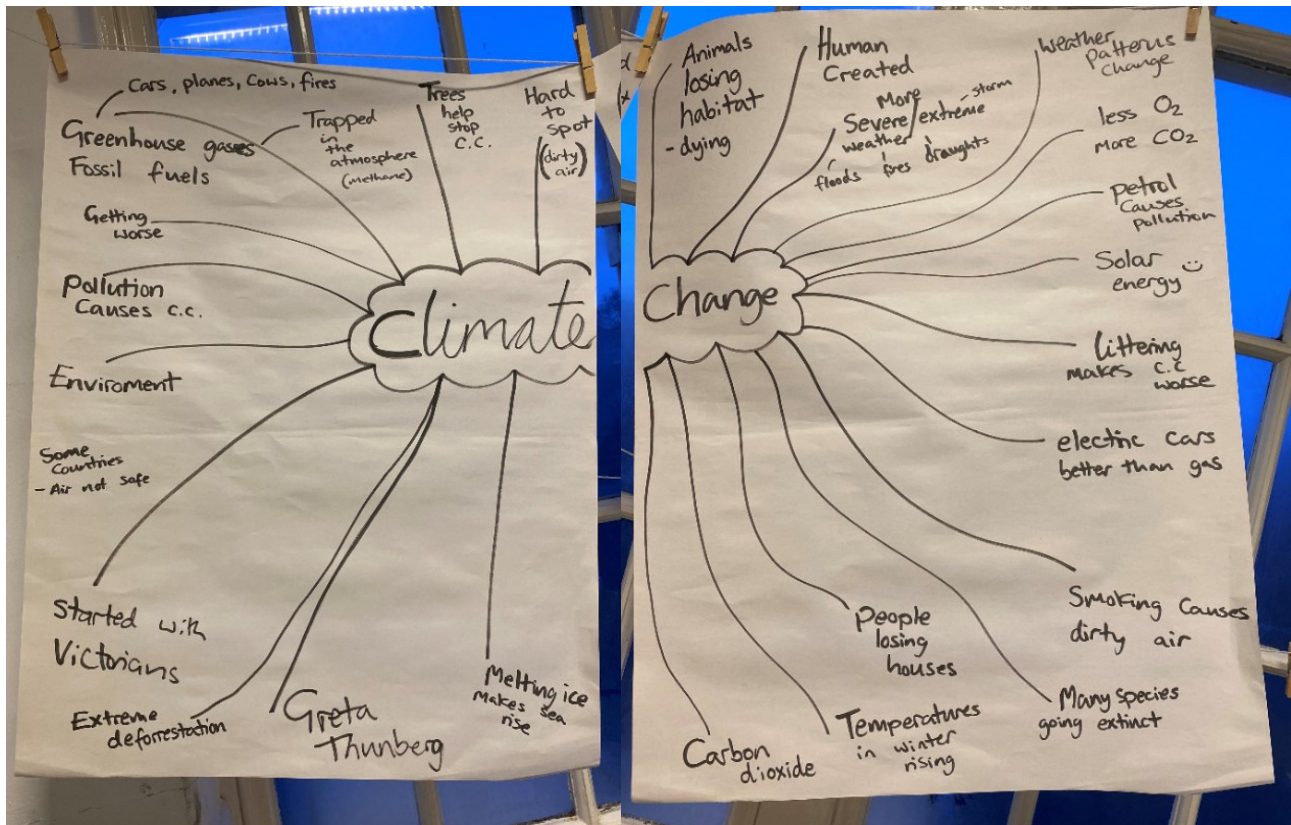 Cars, planes, Cows, fires
Greenhouse gases
Fossil fuels
Trapped
in
the
atmosphere
(methane)
Trees
help
stop
C.C.
Hard
to
spot
(dirty
air)
Getting
worse
Pollution
Causes c.c.
Enviroment
Some
Countries
- Air not safe
Started with
Victorians
Extreme
deforrestation
Greta
Thunberg
Melting ice
makes sea
rise
Climate
Change
Animals
losing
habitat
- dying
Human
Created
More
Severe/extreme
weather
storm
floods fires draughts
Weather
Patterns
Change
less O2
more CO2
Petrol
Causes
pollution
Solar
energy
littering
makes c.c
worse
electric cars
better than gas
Smoking Causes
dirty air
People
losing
houses
Many species
going extinct
Temperatures
in winter
rising
Carbon
dioxide